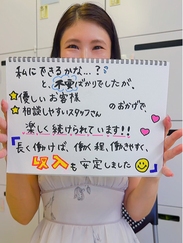 私にできるかな…?
と、不安ばかりでしたが、
☆優しいお客様
☆相談しやすいスタッフさん のおかげで、
楽しく続けられています!!
「長く働けば、働く程、働きやすく、
収入も安定しました